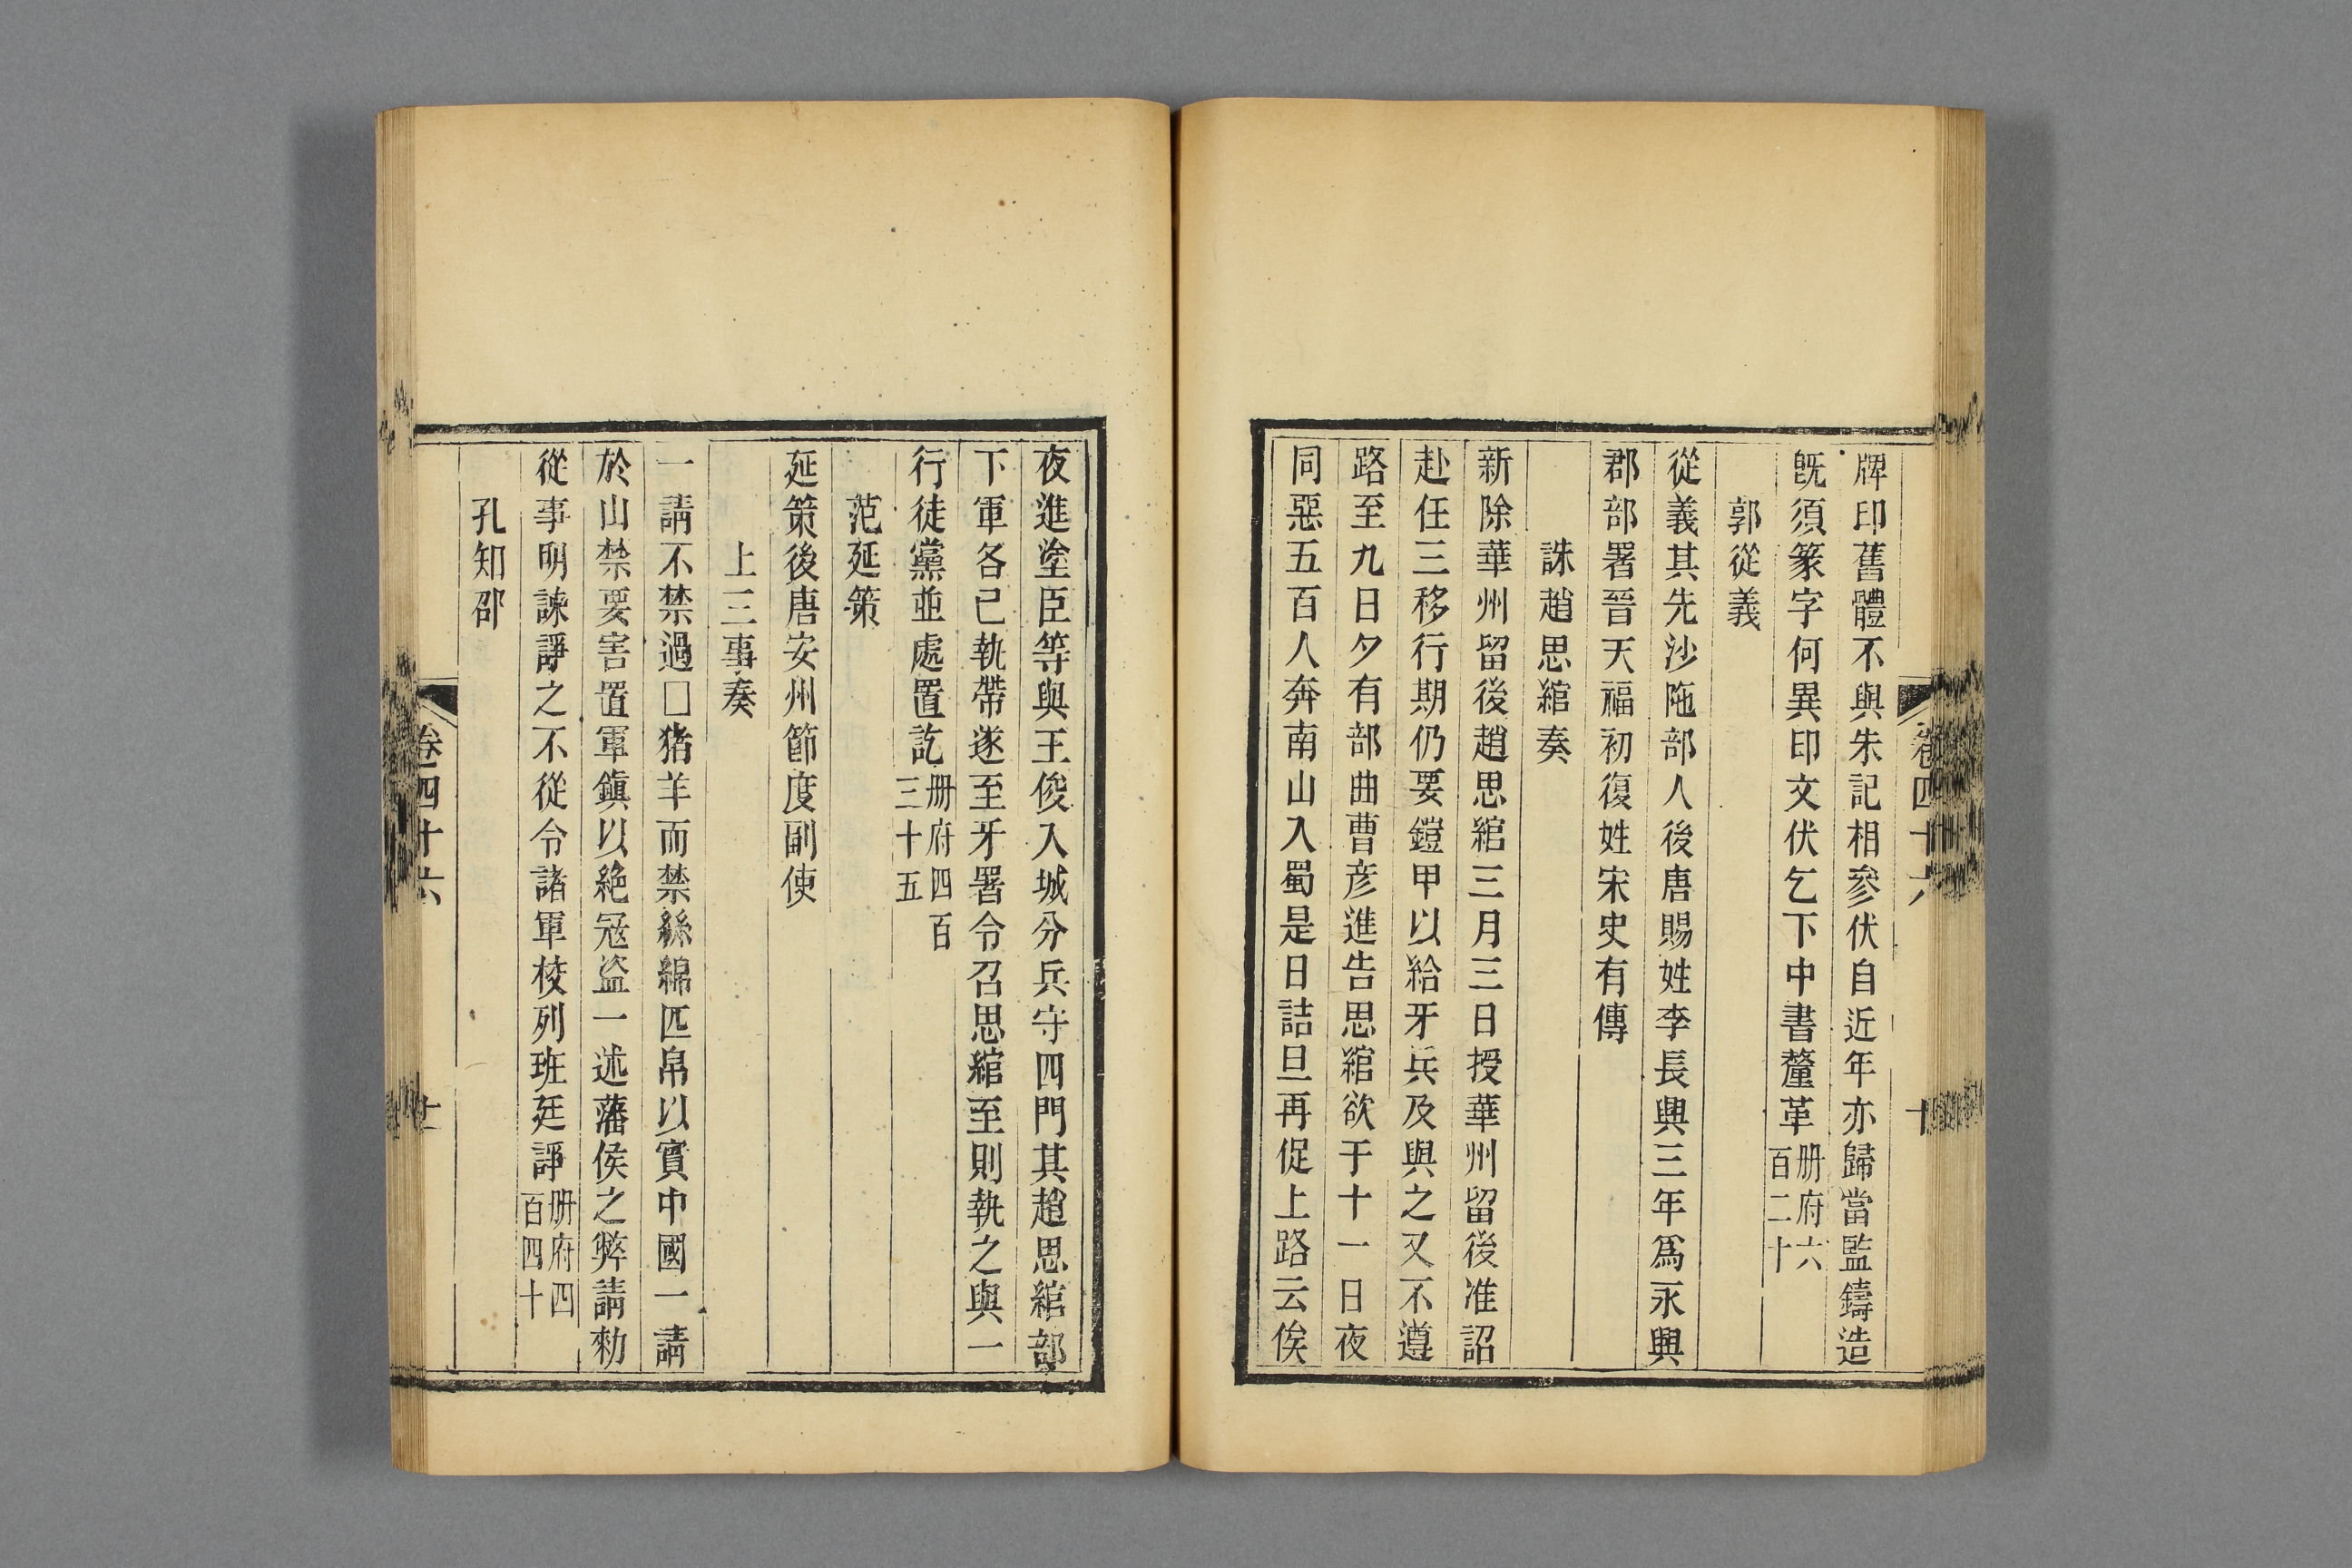 牌印舊體不與朱記相參伏自近年亦歸當監鑄造
旣須篆字何異印文伏乞下中書釐革册府六百二十
郭從義
從義其先沙陁部人後唐賜姓李長興三年爲永興
郡部署晉天福初復姓宋史有傳
誅趙思綰奏
新除華州留後趙思綰三月三日授華州留後准詔
赴任三移行期仍要鎧甲以給牙兵及與之又不遵
路至九日夕有部曲曹彥進告思綰欲于十一日夜
同惡五百人奔南山入蜀是日詰旦再促上路云俟
卷四十六
十
夜進塗臣等與王俊入城分兵守四門其趙思綰部
下軍各己執帶遂至牙署令召思綰至則執之與一
行徒黨並處置訖册府四百三十五
范延策
延策後唐安州節度副使
上三事奏
一請不禁過□猪羊而禁絲綿匹帛以實中國一請
於山禁要害置軍鎭以絶冦盜一述藩侯之弊請勑
從事明諫諍之不從令諸軍校列班廷諍册府四百四十
孔知邵
卷四十六